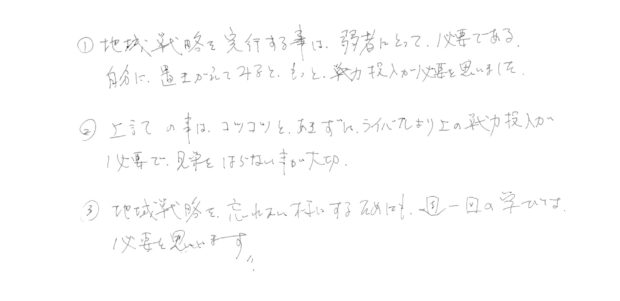 ① 地域戦略を実行する事は、弱者にとって、必要である。
自分に、置きかえてみると、もっと、戦力投入が必要と思いました。
② 上記の事は、コツコツと、あきずに、ライバルより上の戦力投入が
必要で、見栄をはらない事が大切、
③ 地域戦略を、忘れない様にするためにも、週一回の学びは、
必要と思います。